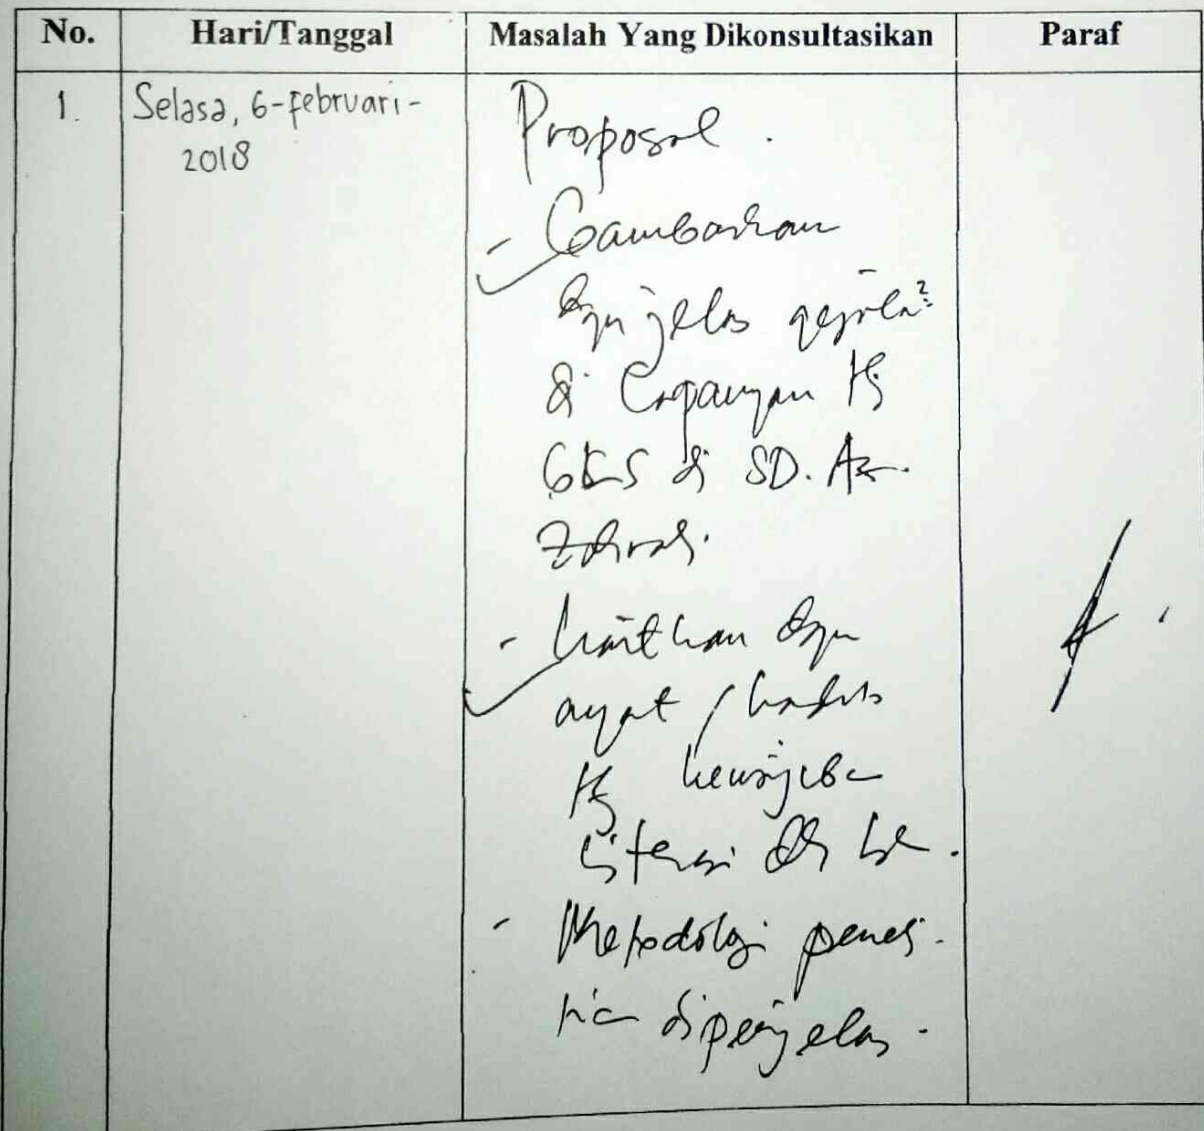 No. Hari/Tanggal Masalah Yang Dikonsultasikan Paraf
1. Selasa, 6-februari-
2018
Proposal.
- Gambarkan
dgn jelas gejala²
di lapangan ttg
GLS di SD. Az-
Zahrah.
- kaitkan dgn
ayat / hadits
ttg
literasi
- Metodologi peneli-
tian diperjelas.